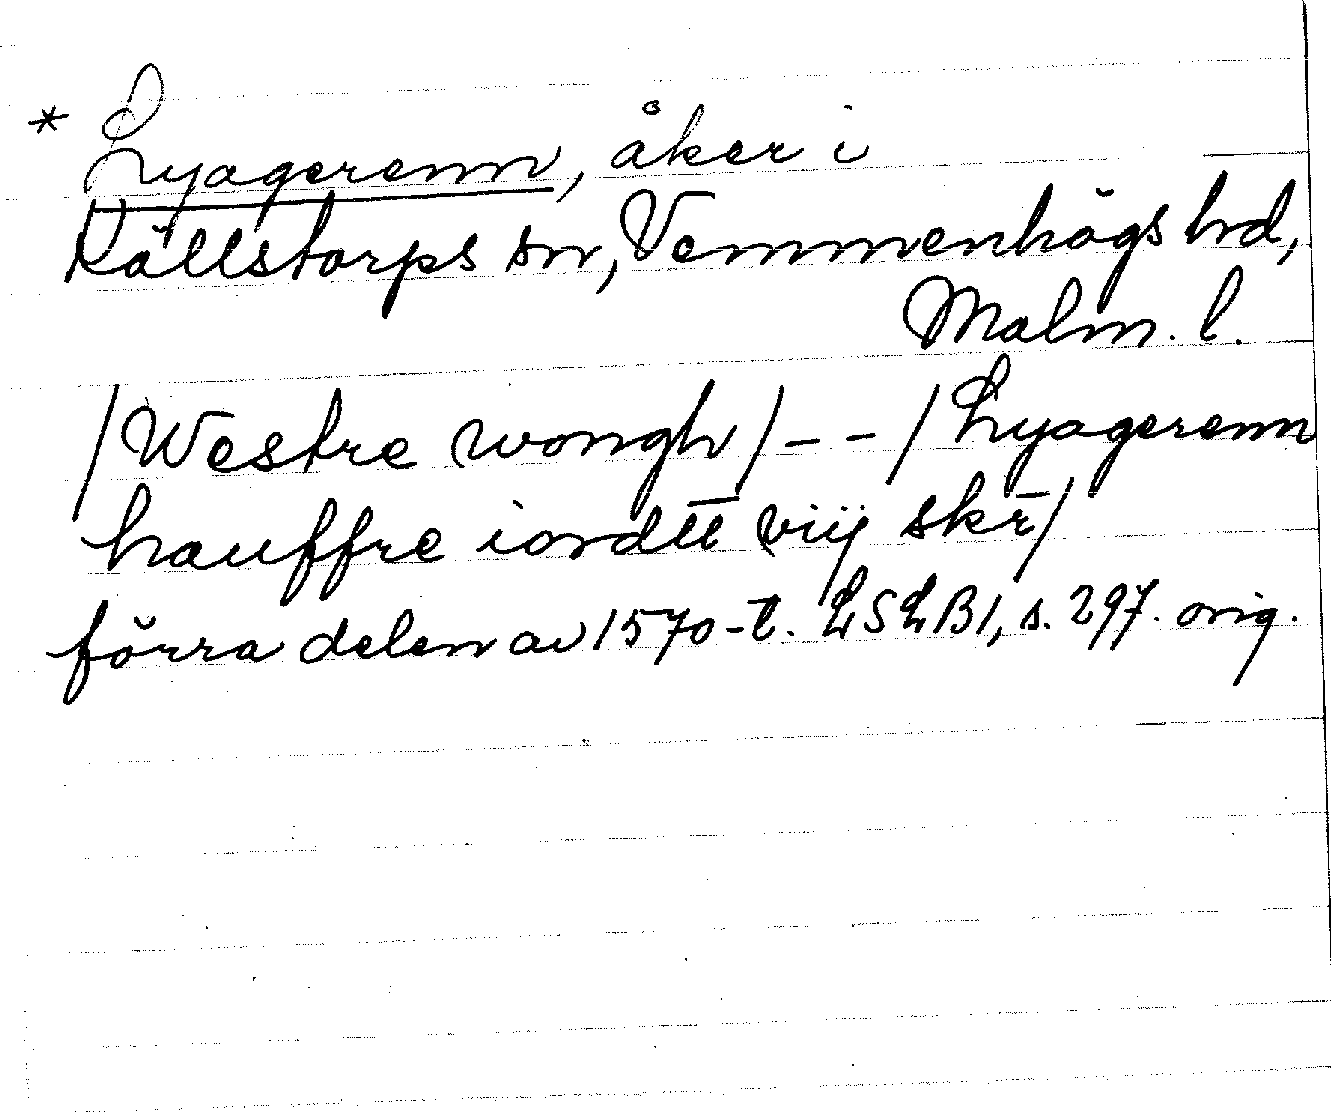 * Lyagerenn, åker i
Källstorps sn, Vemmenhögs hd,
Malm. l.
/Westre wongh/ - - / Lyagerenn
hauffre iordtt viij skr̄/
förra delen av 1570-t. LSLB1, s. 297. orig.